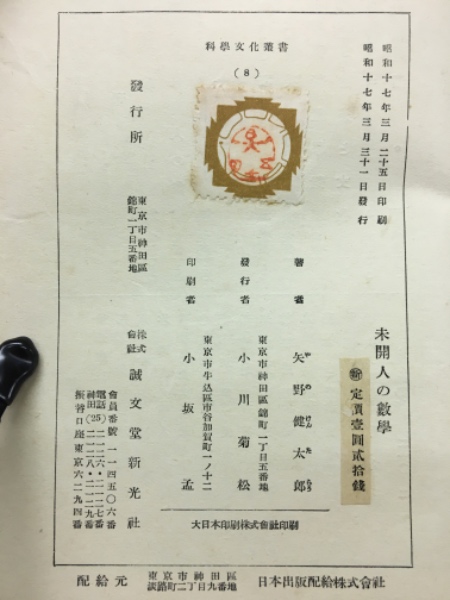 科學文化叢書
(8)
昭和十七年三月二十五日印刷
昭和十七年三月三十一日發行
未開人の數學
新 定價壹圓貳拾錢
著者 矢野健太郎
や の けん た ろう
東京市神田區錦町一丁目五番地
發行者 小川菊松
東京市牛込區市谷加賀町一ノ十二
印刷者 小坂孟
大日本印刷株式會社印刷
發行所
東京市神田區
錦町一丁目五番地
株式
會社 誠文堂新光社
會員番號 一一四五〇六番
電話
神田(25)二一二六・二一二七番
二一二八・二一二九番
振替口座東京六二九四番
配給元
東京市神田區
淡路町二丁目九番地
日本出版配給株式會社